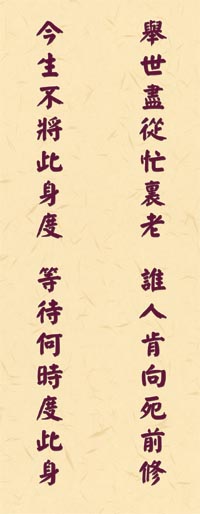 舉世盡從忙裏老　誰人肯向死前修
今生不將此身度　等待何時度此身